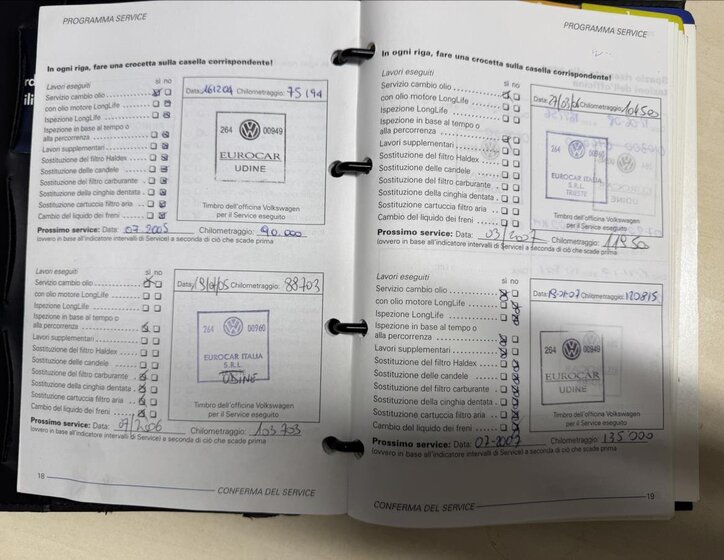 PROGRAMMA SERVICE
In ogni riga, fare una crocetta sulla casella corrispondente!
Lavori eseguiti sì no
Servizio cambio olio
con olio motore LongLife
Ispezione LongLife
Ispezione in base al tempo o
alla percorrenza
Lavori supplementari
Sostituzione del filtro Haldex
Sostituzione delle candele
Sostituzione del filtro carburante
Sostituzione della cinghia dentata
Sostituzione cartuccia filtro aria
Cambio del liquido dei freni
Data: 161204 Chilometraggio: 75194
264 00949
EUROCAR
UDINE
Timbro dell'officina Volkswagen
per il Service eseguito
Prossimo service: Data: 07 2005 Chilometraggio: 90.000
(ovvero in base all'indicatore intervalli di Service) a seconda di ciò che scade prima
Lavori eseguiti sì no
Servizio cambio olio
con olio motore LongLife
Ispezione LongLife
Ispezione in base al tempo o
alla percorrenza
Lavori supplementari
Sostituzione del filtro Haldex
Sostituzione delle candele
Sostituzione del filtro carburante
Sostituzione della cinghia dentata
Sostituzione cartuccia filtro aria
Cambio del liquido dei freni
Data: Chilometraggio: 88703
264 00960
EUROCAR ITALIA
S.R.L.
UDINE
Timbro dell'officina Volkswagen
per il Service eseguito
Prossimo service: Data: 07/2006 Chilometraggio: 103703
(ovvero in base all'indicatore intervalli di Service) a seconda di ciò che scade prima
18
CONFERMA DEL SERVICE
PROGRAMMA SERVICE
In ogni riga, fare una crocetta sulla casella corrispondente!
Lavori eseguiti sì no
Servizio cambio olio
con olio motore LongLife
Ispezione LongLife
Ispezione in base al tempo o
alla percorrenza
Lavori supplementari
Sostituzione del filtro Haldex
Sostituzione delle candele
Sostituzione del filtro carburante
Sostituzione della cinghia dentata
Sostituzione cartuccia filtro aria
Cambio del liquido dei freni
Data: Chilometraggio: 104500
264 00949
EUROCAR ITALIA
S.R.L.
TRIESTE
Timbro dell'officina Volkswagen
per il Service eseguito
Prossimo service: Data: 03/2007 Chilometraggio:
(ovvero in base all'indicatore intervalli di Service) a seconda di ciò che scade prima
Lavori eseguiti sì no
Servizio cambio olio
con olio motore LongLife
Ispezione LongLife
Ispezione in base al tempo o
alla percorrenza
Lavori supplementari
Sostituzione del filtro Haldex
Sostituzione delle candele
Sostituzione del filtro carburante
Sostituzione della cinghia dentata
Sostituzione cartuccia filtro aria
Cambio del liquido dei freni
Data: Chilometraggio: 120815
264 00949
EUROCAR
UDINE
Timbro dell'officina Volkswagen
per il Service eseguito
Prossimo service: Data: 07-2007 Chilometraggio: 135000
(ovvero in base all'indicatore intervalli di Service) a seconda di ciò che scade prima
CONFERMA DEL SERVICE
19